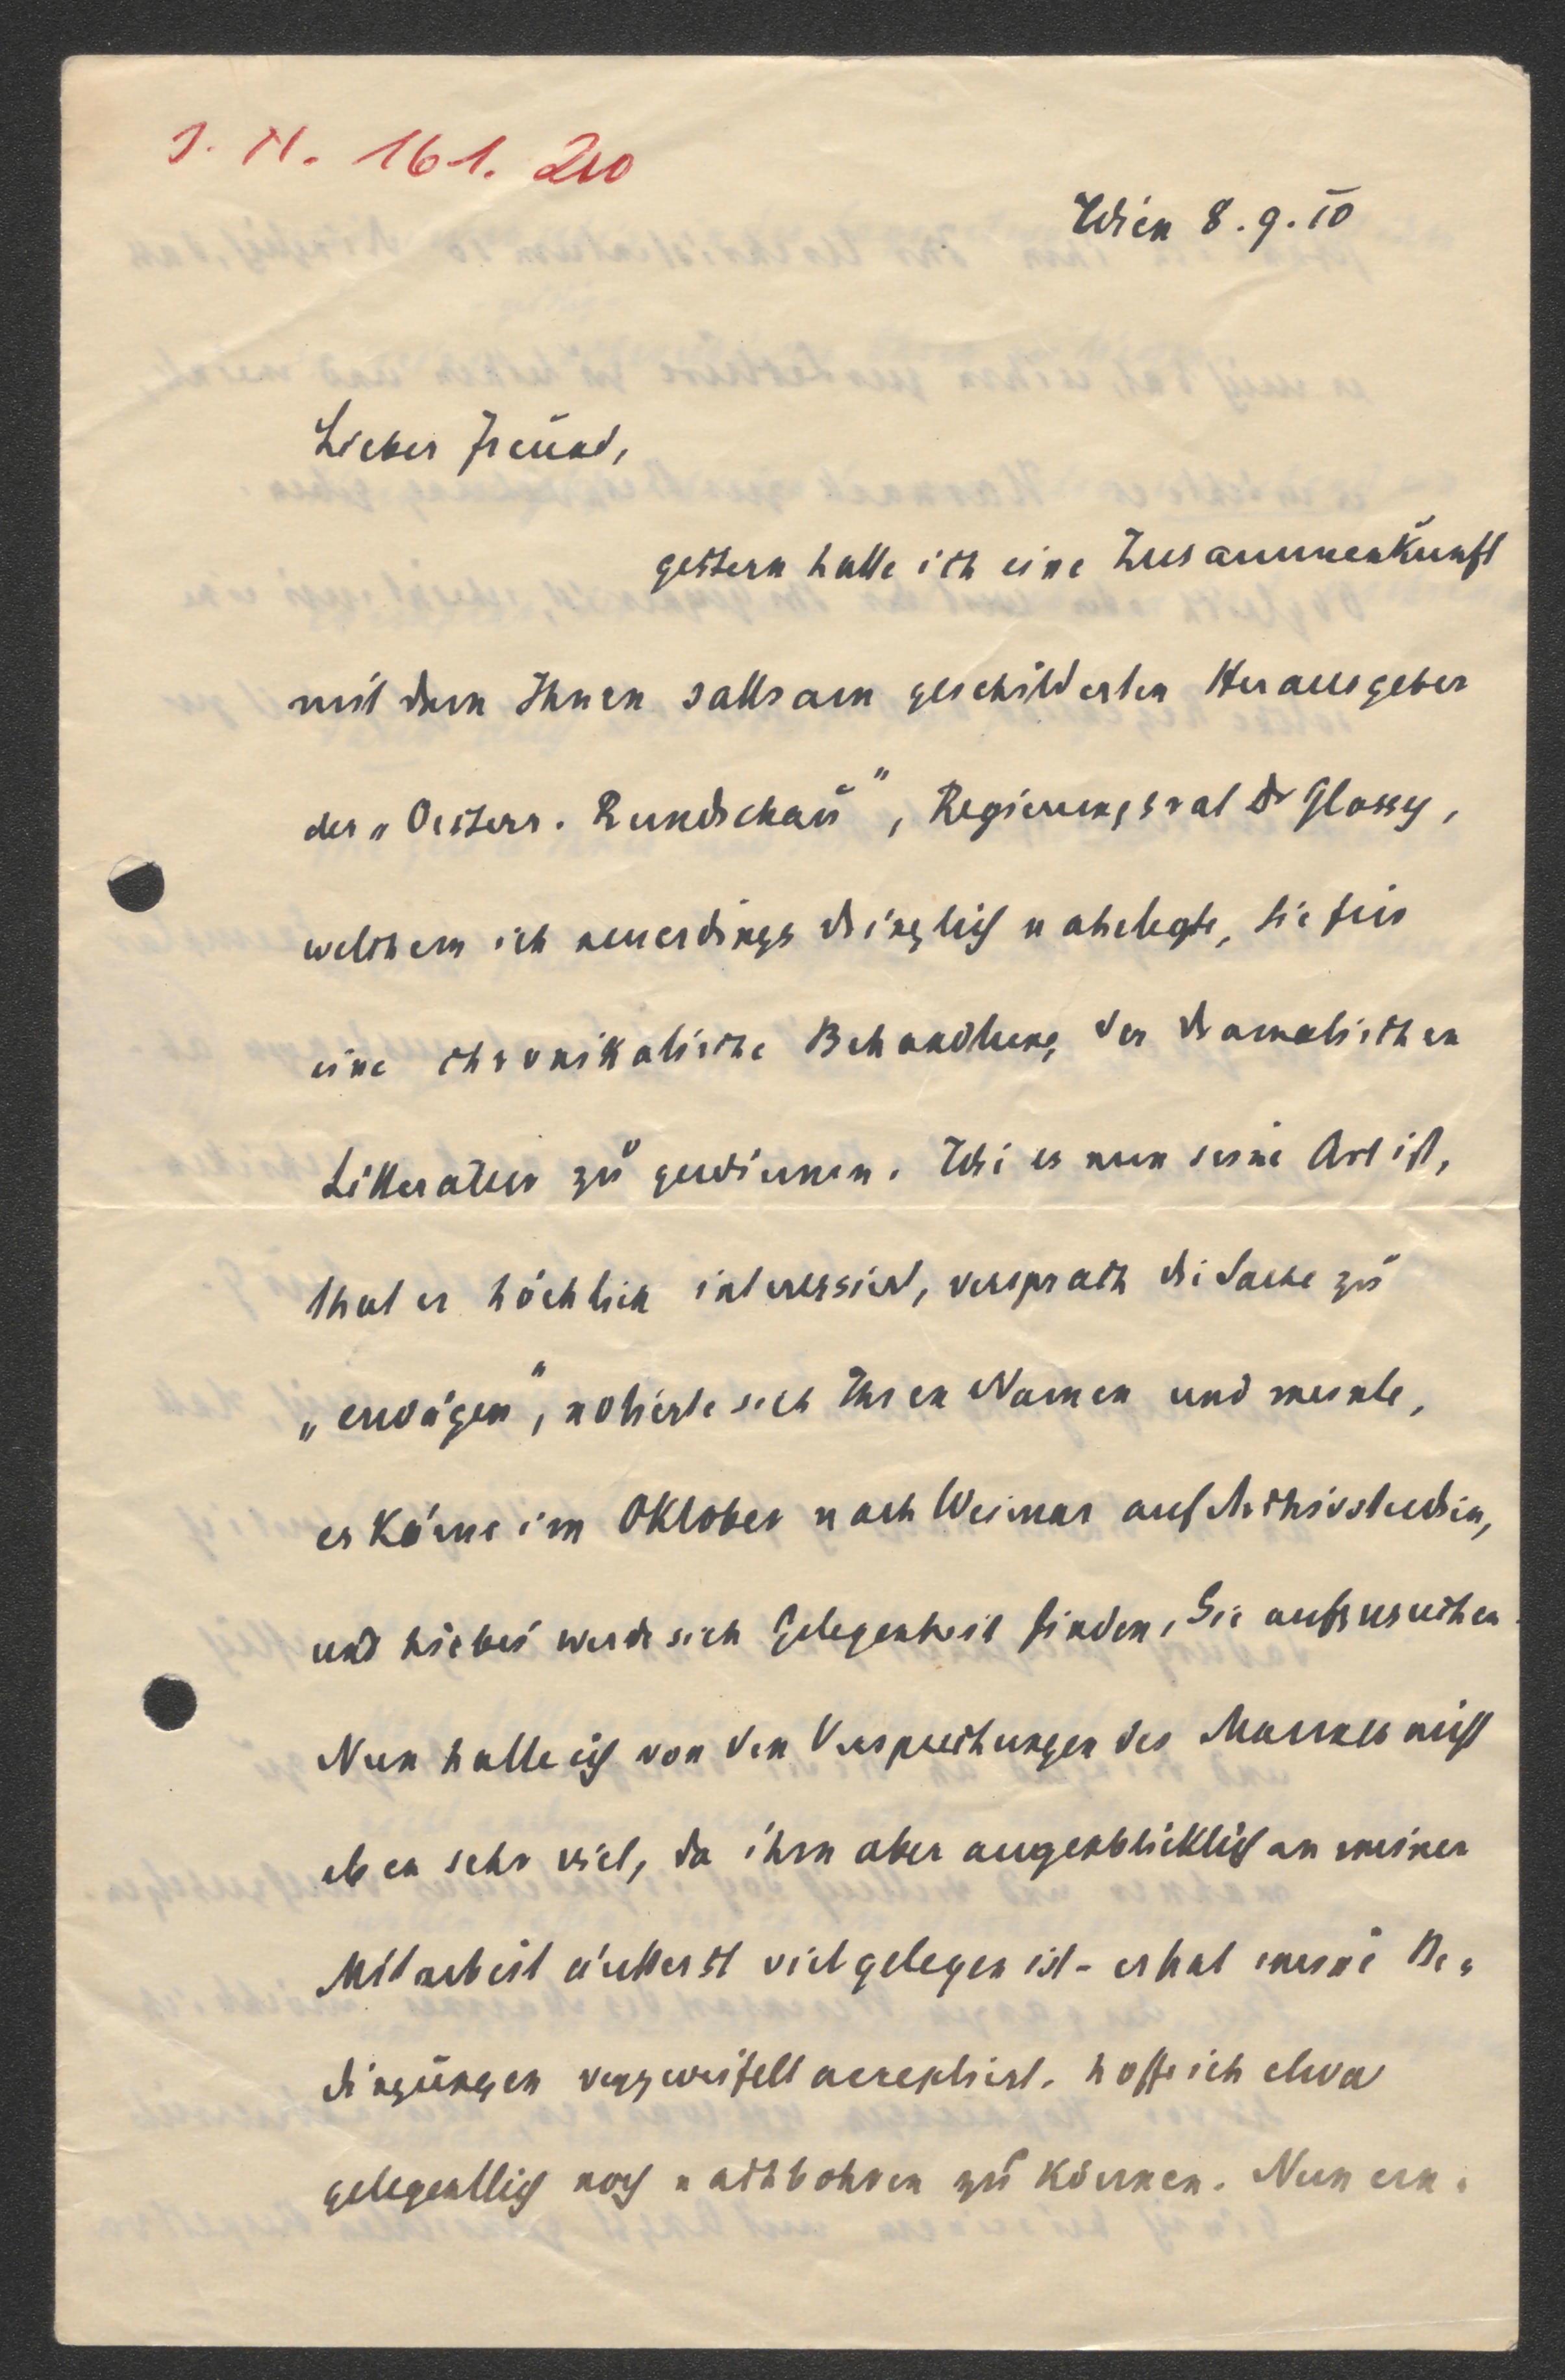 J. N. 161.210
Wien 8.9.10
Lieber Freund,
gestern hatte ich eine Zusammenkunft
mit dem Ihnen sattsam geschilderten Herausgeber
der „Oesterr. Rundschau", Regierungsrat Dr Glossy,
welchem ich neuerdings dringlich nahelegte, Sie für
eine chronikalische Behandlung der dramatischen
Litteratur zu gewinnen. Wie es nun seine Art ist,
that er höchlich interessiert, versprach die Sache zu
„erwägen", notierte sich Ihren Namen und meinte,
er käme im Oktober nach Weimar auf Archivstudien,
und hiebei werde sich Gelegenheit finden, Sie aufzusuchen.
Nun halte ich von den Versprechungen des Mannes nicht
eben sehr viel, da ihm aber augenblicklich an meiner
Mitarbeit äußerst viel gelegen ist - er hat meine Be-
dingungen verzweifelt acceptiert. hoffe ich etwa
gelegentlich noch nachbohren zu können. Nun em-